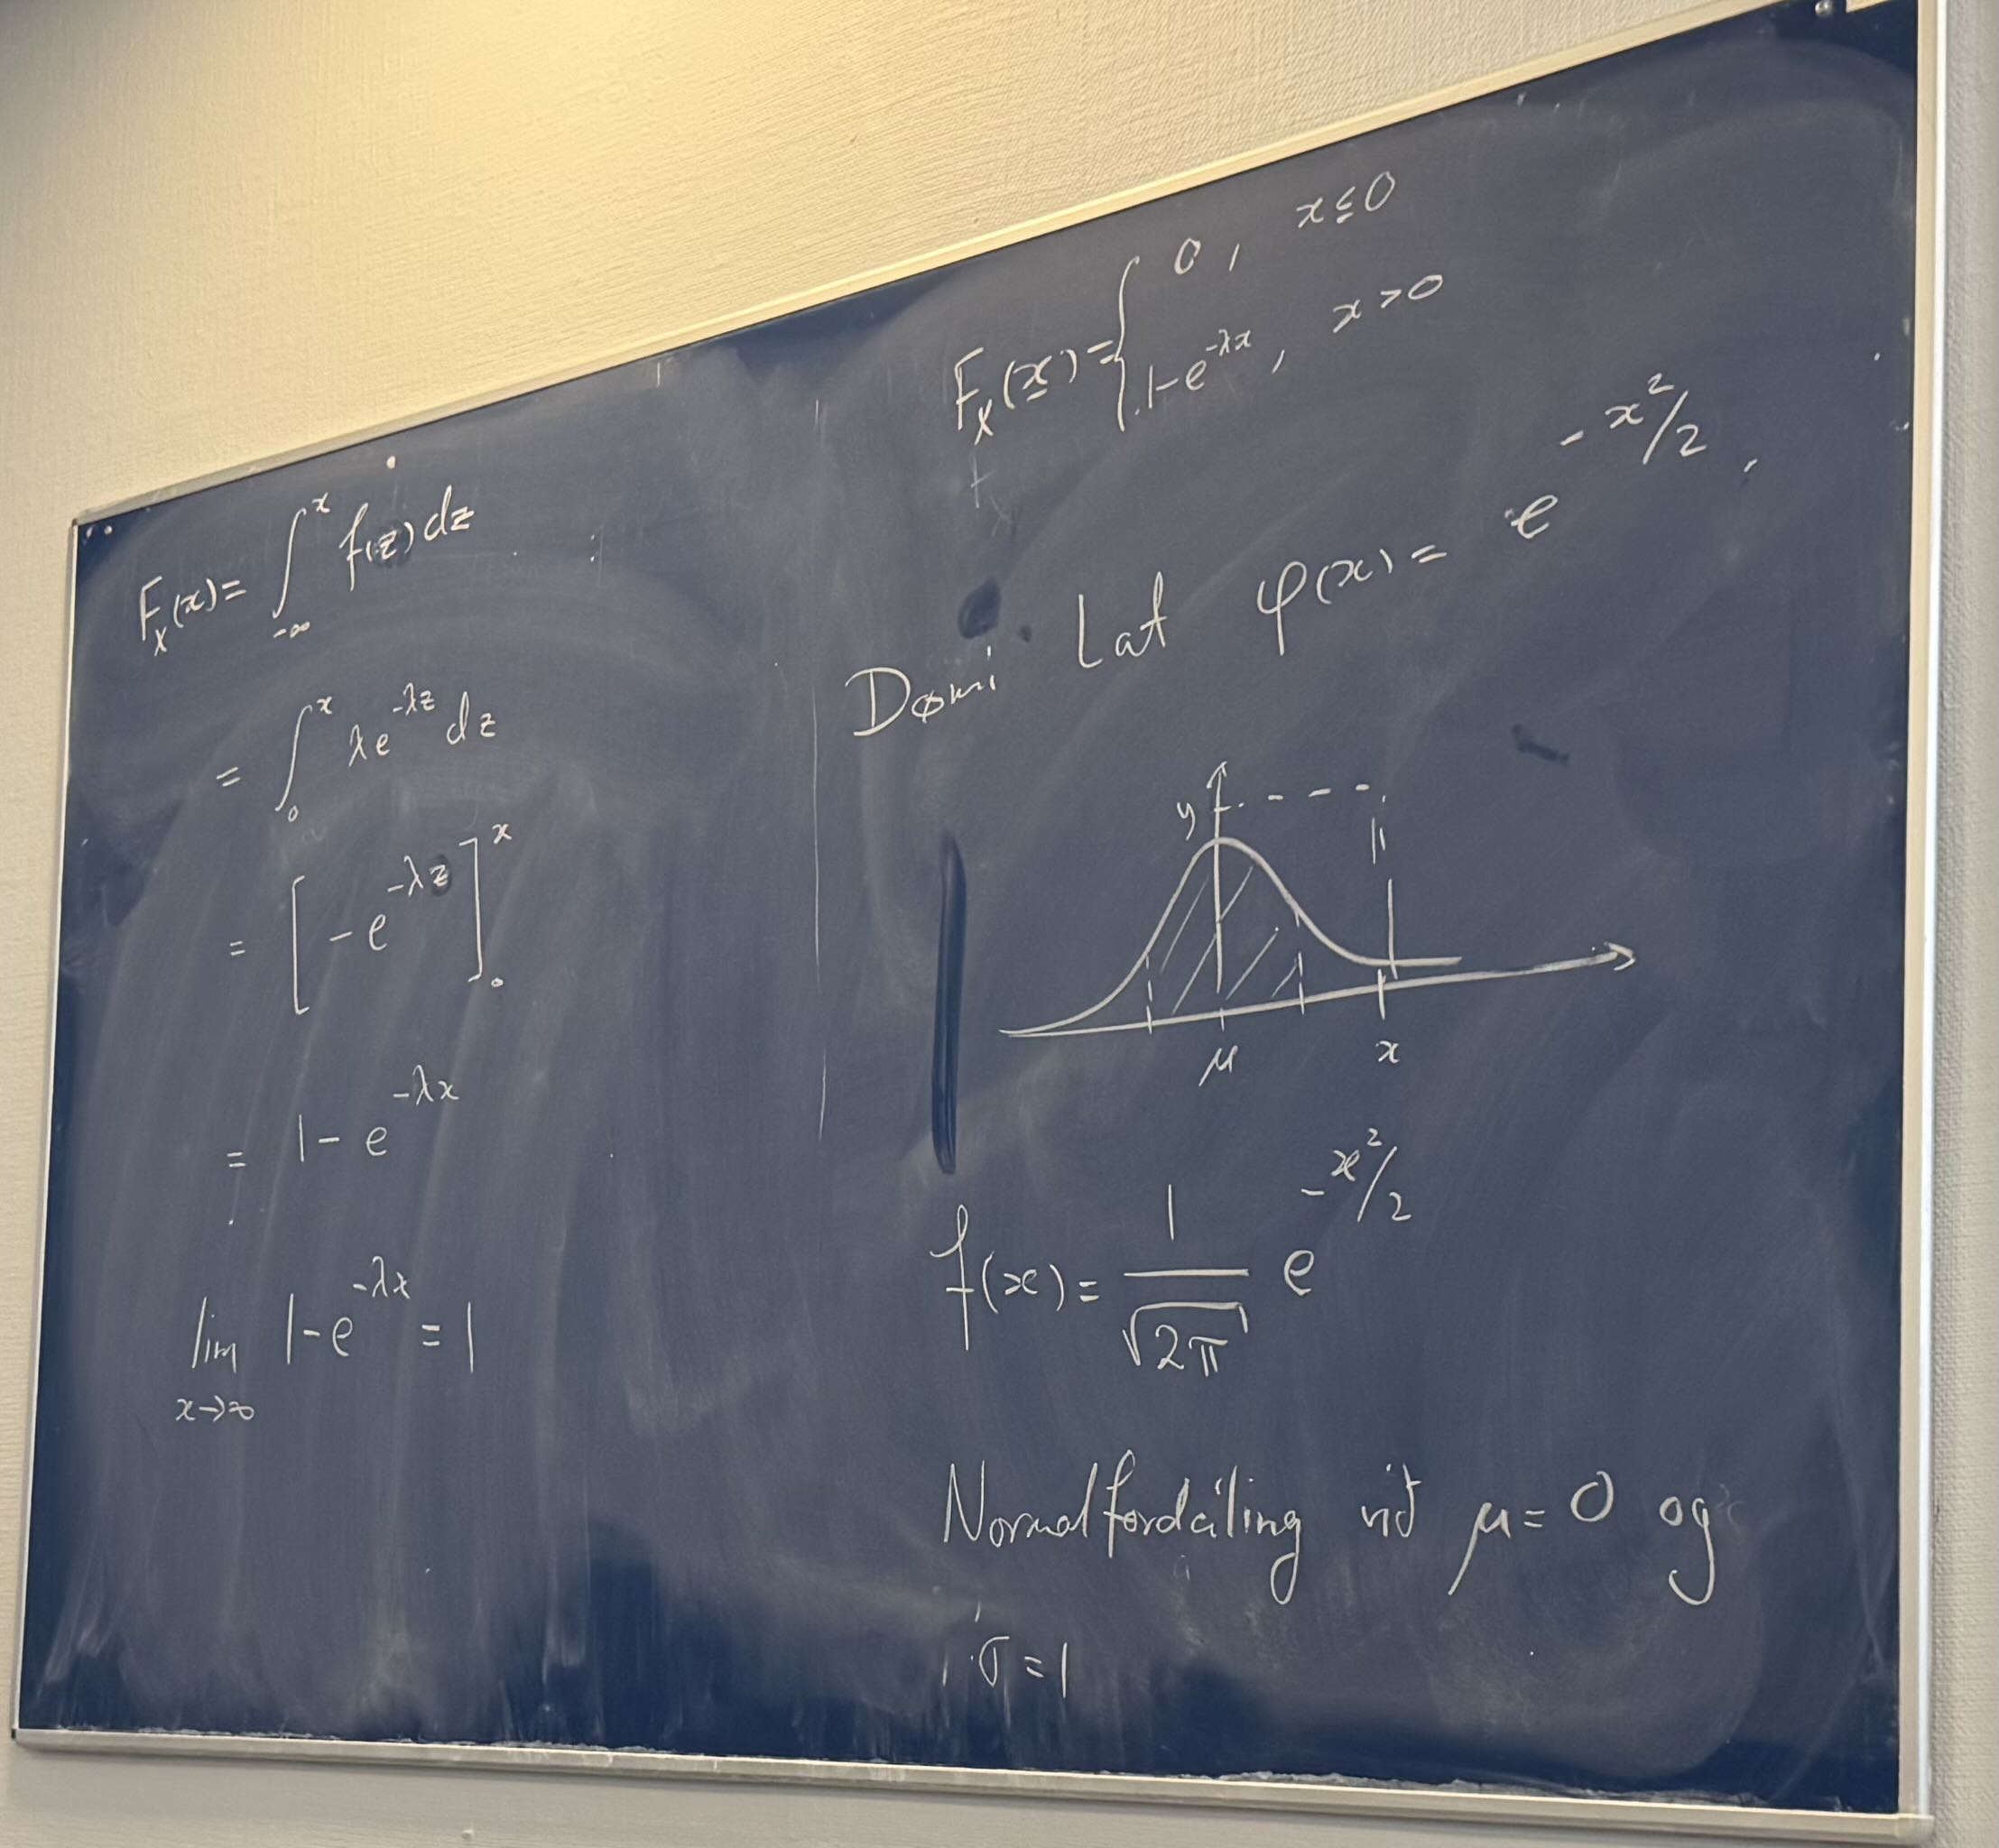 F_X(x) = ∫_{-∞}^{x} f(z) dz
= ∫_{0}^{x} λe^{-λz} dz
= [-e^{-λz}]_{0}^{x}
= 1 - e^{-λx}
lim_{x→∞} 1 - e^{-λx} = 1
F_X(x) = { 0, x ≤ 0
1 - e^{-λx}, x > 0
Dømi Lat φ(x) = e^{-x²/2},
y
μ x
f(x) = 1/√(2π) e^{-x²/2}
Normalfordeiling við μ = 0 og
σ = 1